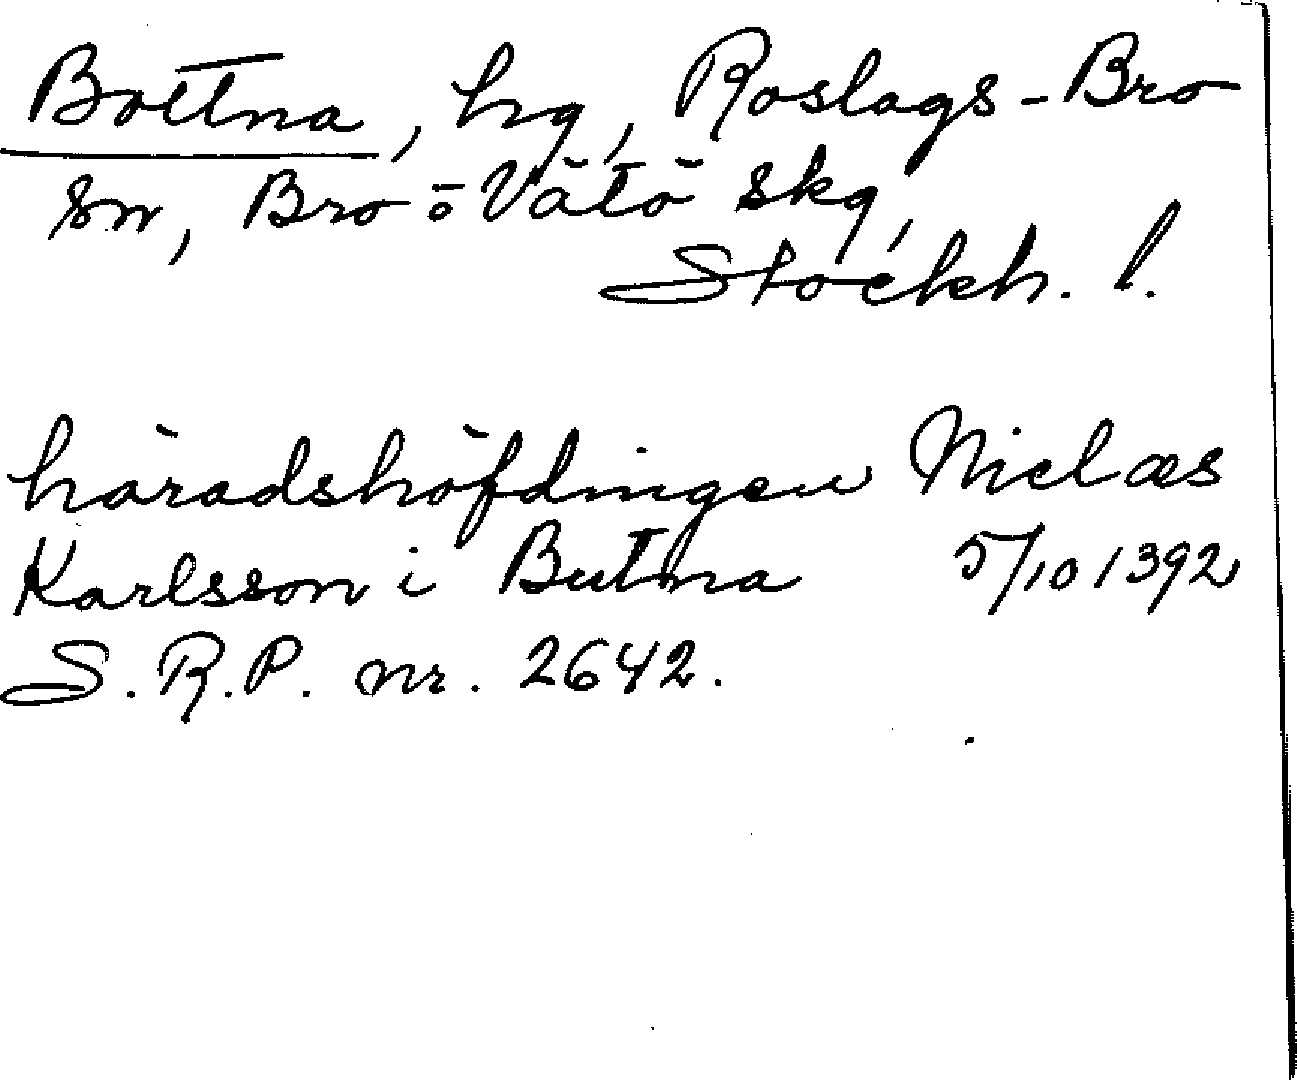 Bottna, hg, Roslags-Bro
sn, Bro o Vätö skg,
Stockh. l.
häradshöfdingen Niclæs
Karlsson i Butna 5/10 1392
S.R.P. nr. 2642.